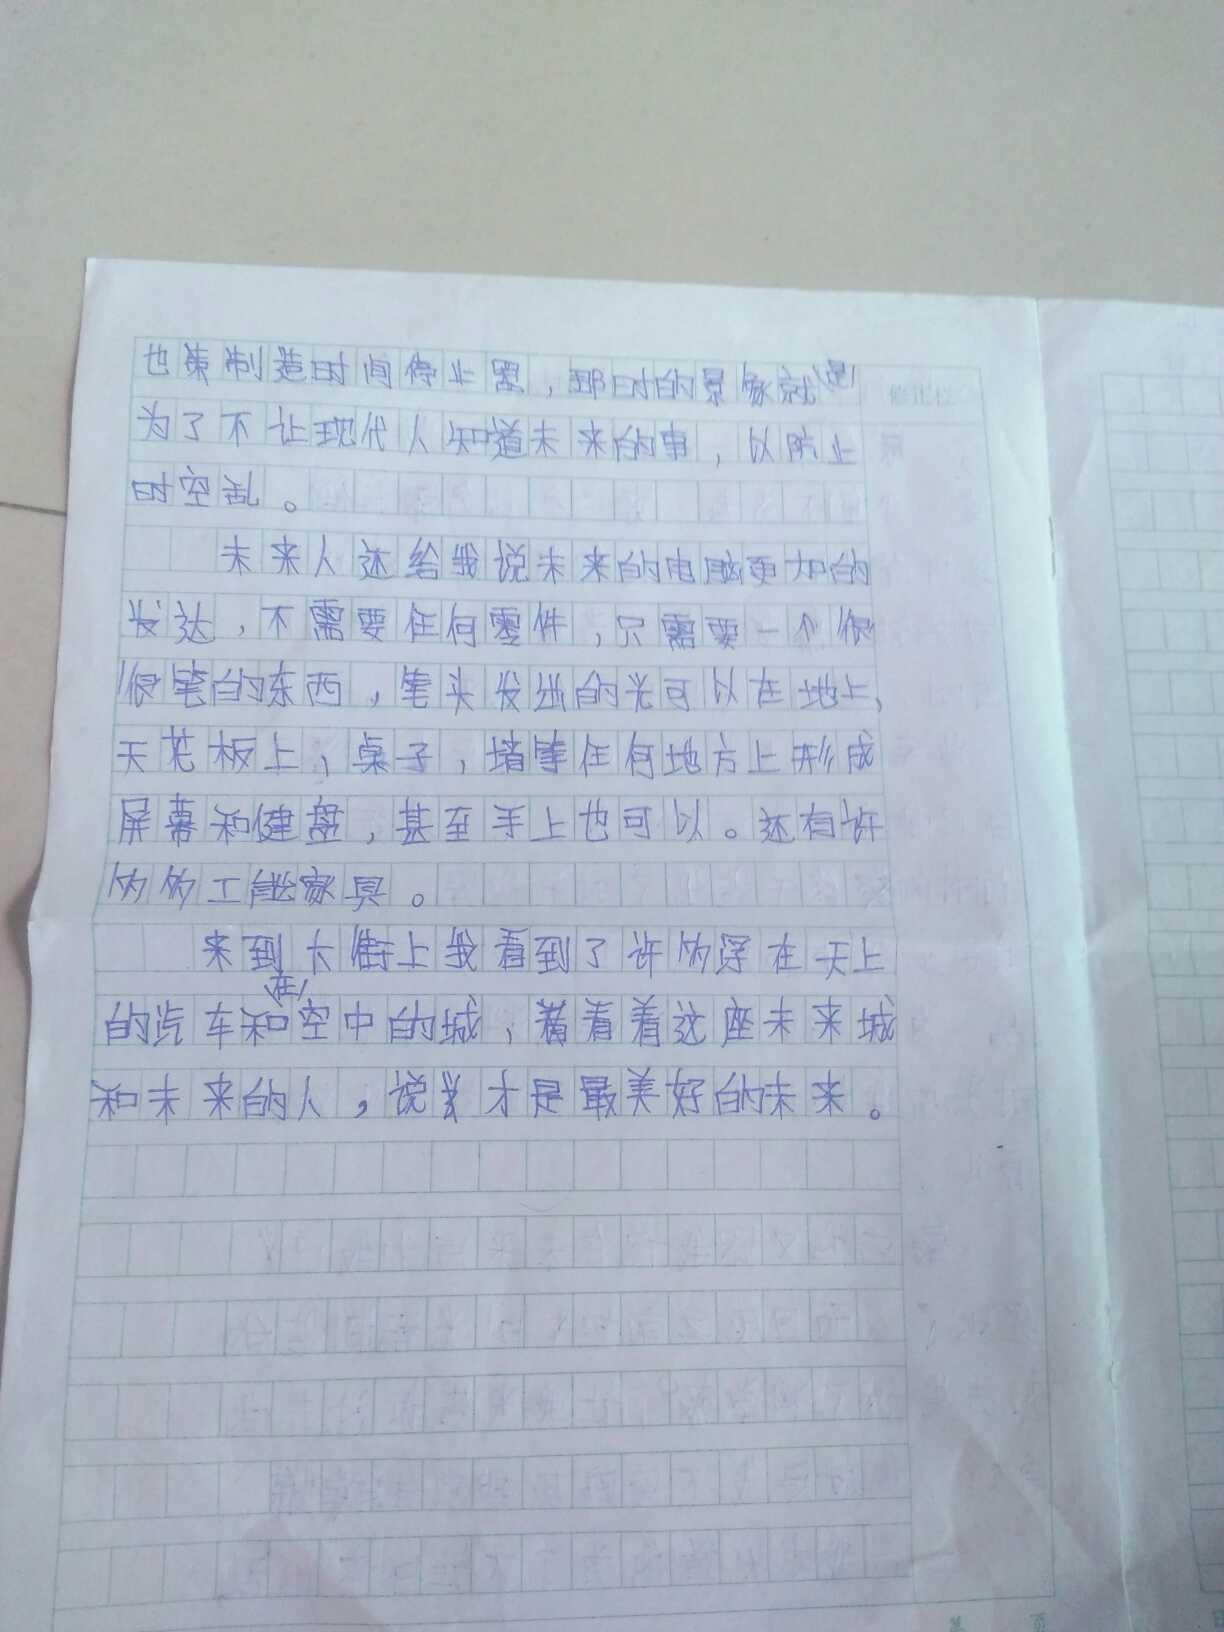 也来制造时间停止器，那时的景象就是
为了不让现代人知道未来的事，以防止
时空乱。
未来人还给我说未来的电脑更加的
发达，不需要任何零件，只需要一个很
很笔的东西，笔头发出的光可以在地上，
天花板上，桌子，墙等任何地方上形成
屏幕和健盘，甚至手上也可以。还有许
的的工能家具。
来到大街上我看到了许的浮在天上
的汽车和在空中的城，看着这座未来城
和未来的人，说才是最美好的未来。